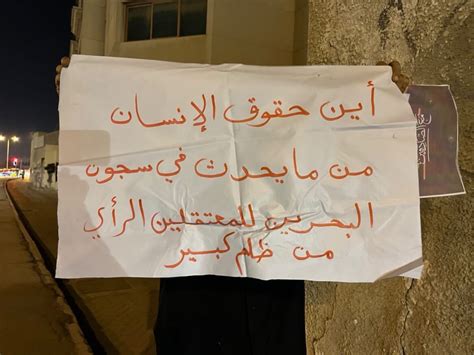 أين حقوق الإنسان
من ما يحدث في سجون
البحرين للمعتقلين الرأي
من ظلم كبير